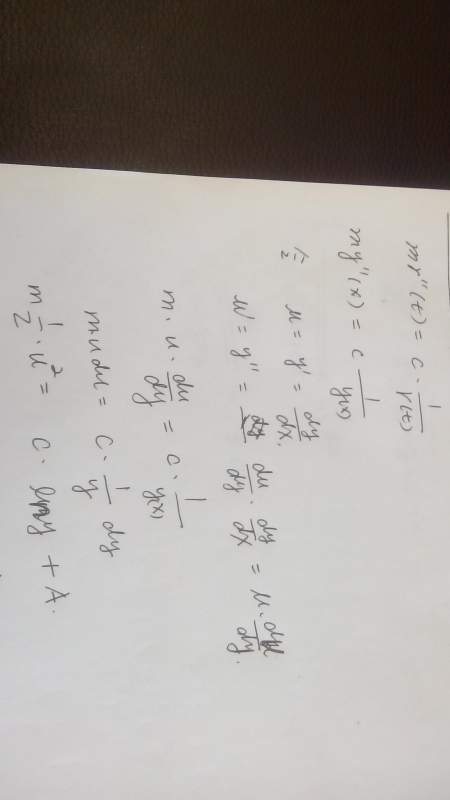 m r''(t) = c · 1/r(t)
m y''(x) = c 1/y(x)
u = y' = dy/dx.
u' = y'' = du/dy · dy/dx = u · du/dy.
m · u · du/dy = c · 1/y(x)
m u du = c · 1/y dy
m 1/2 · u² = c · ln y + A.